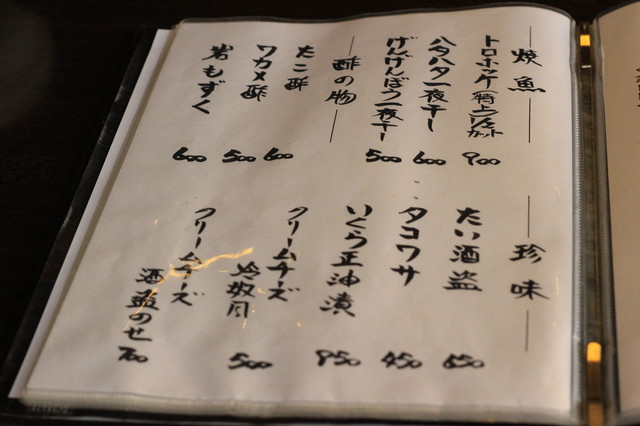 焼魚
トロホッケ(特上)1/2カット 900
ハタハタ一夜干 600
げんげんぼう一夜干 500
酢の物
たこ酢 600
ワカメ酢 500
岩もずく 600
珍味
たい酒盗 650
タコワサ 450
いくら正油漬 850
クリームチーズ
冷奴風 500
クリームチーズ
酒盗のせ 700